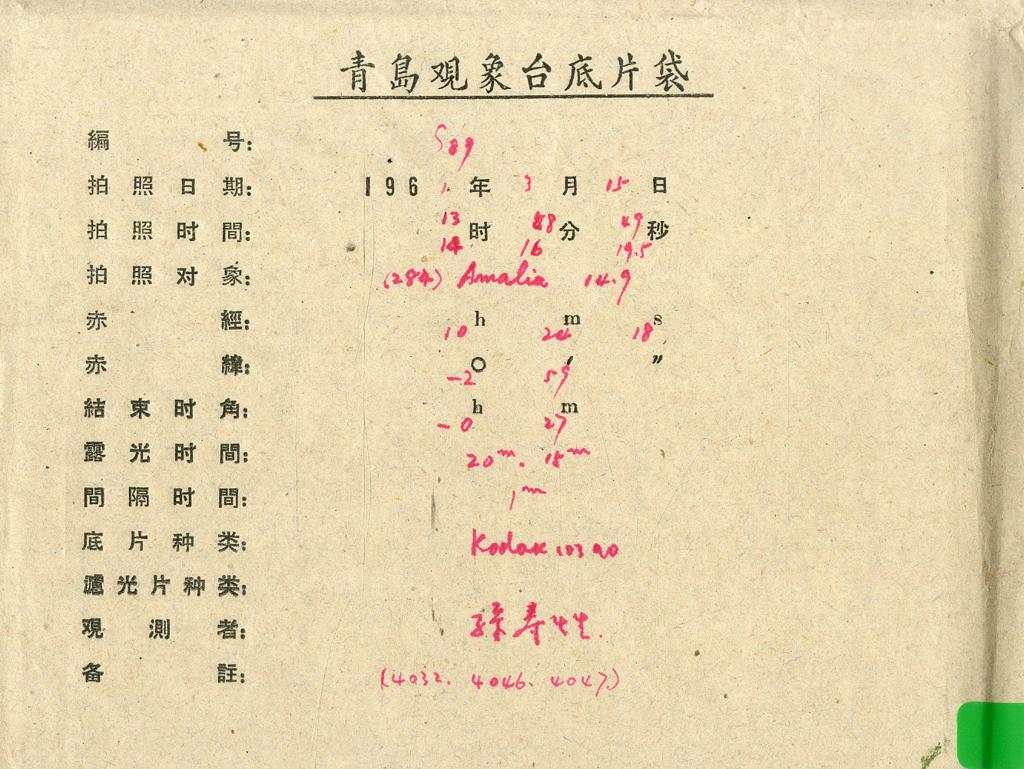 青島观象台底片袋
編号: S89
拍照日期: 1961年3月15日
拍照时間: 13时48分49秒
14 16 19.5
拍照对象: (284) Amalia 14.9
赤經: 10h 24m 18s
赤緯: -2° 59′ ″
結束时角: -0h 27m
露光时間: 20m. 15m
間隔时間: 1m
底片种类: Kodak 103 a0
濾光片种类:
观測者: 孫寿
备註: (4032. 4046. 4047.)